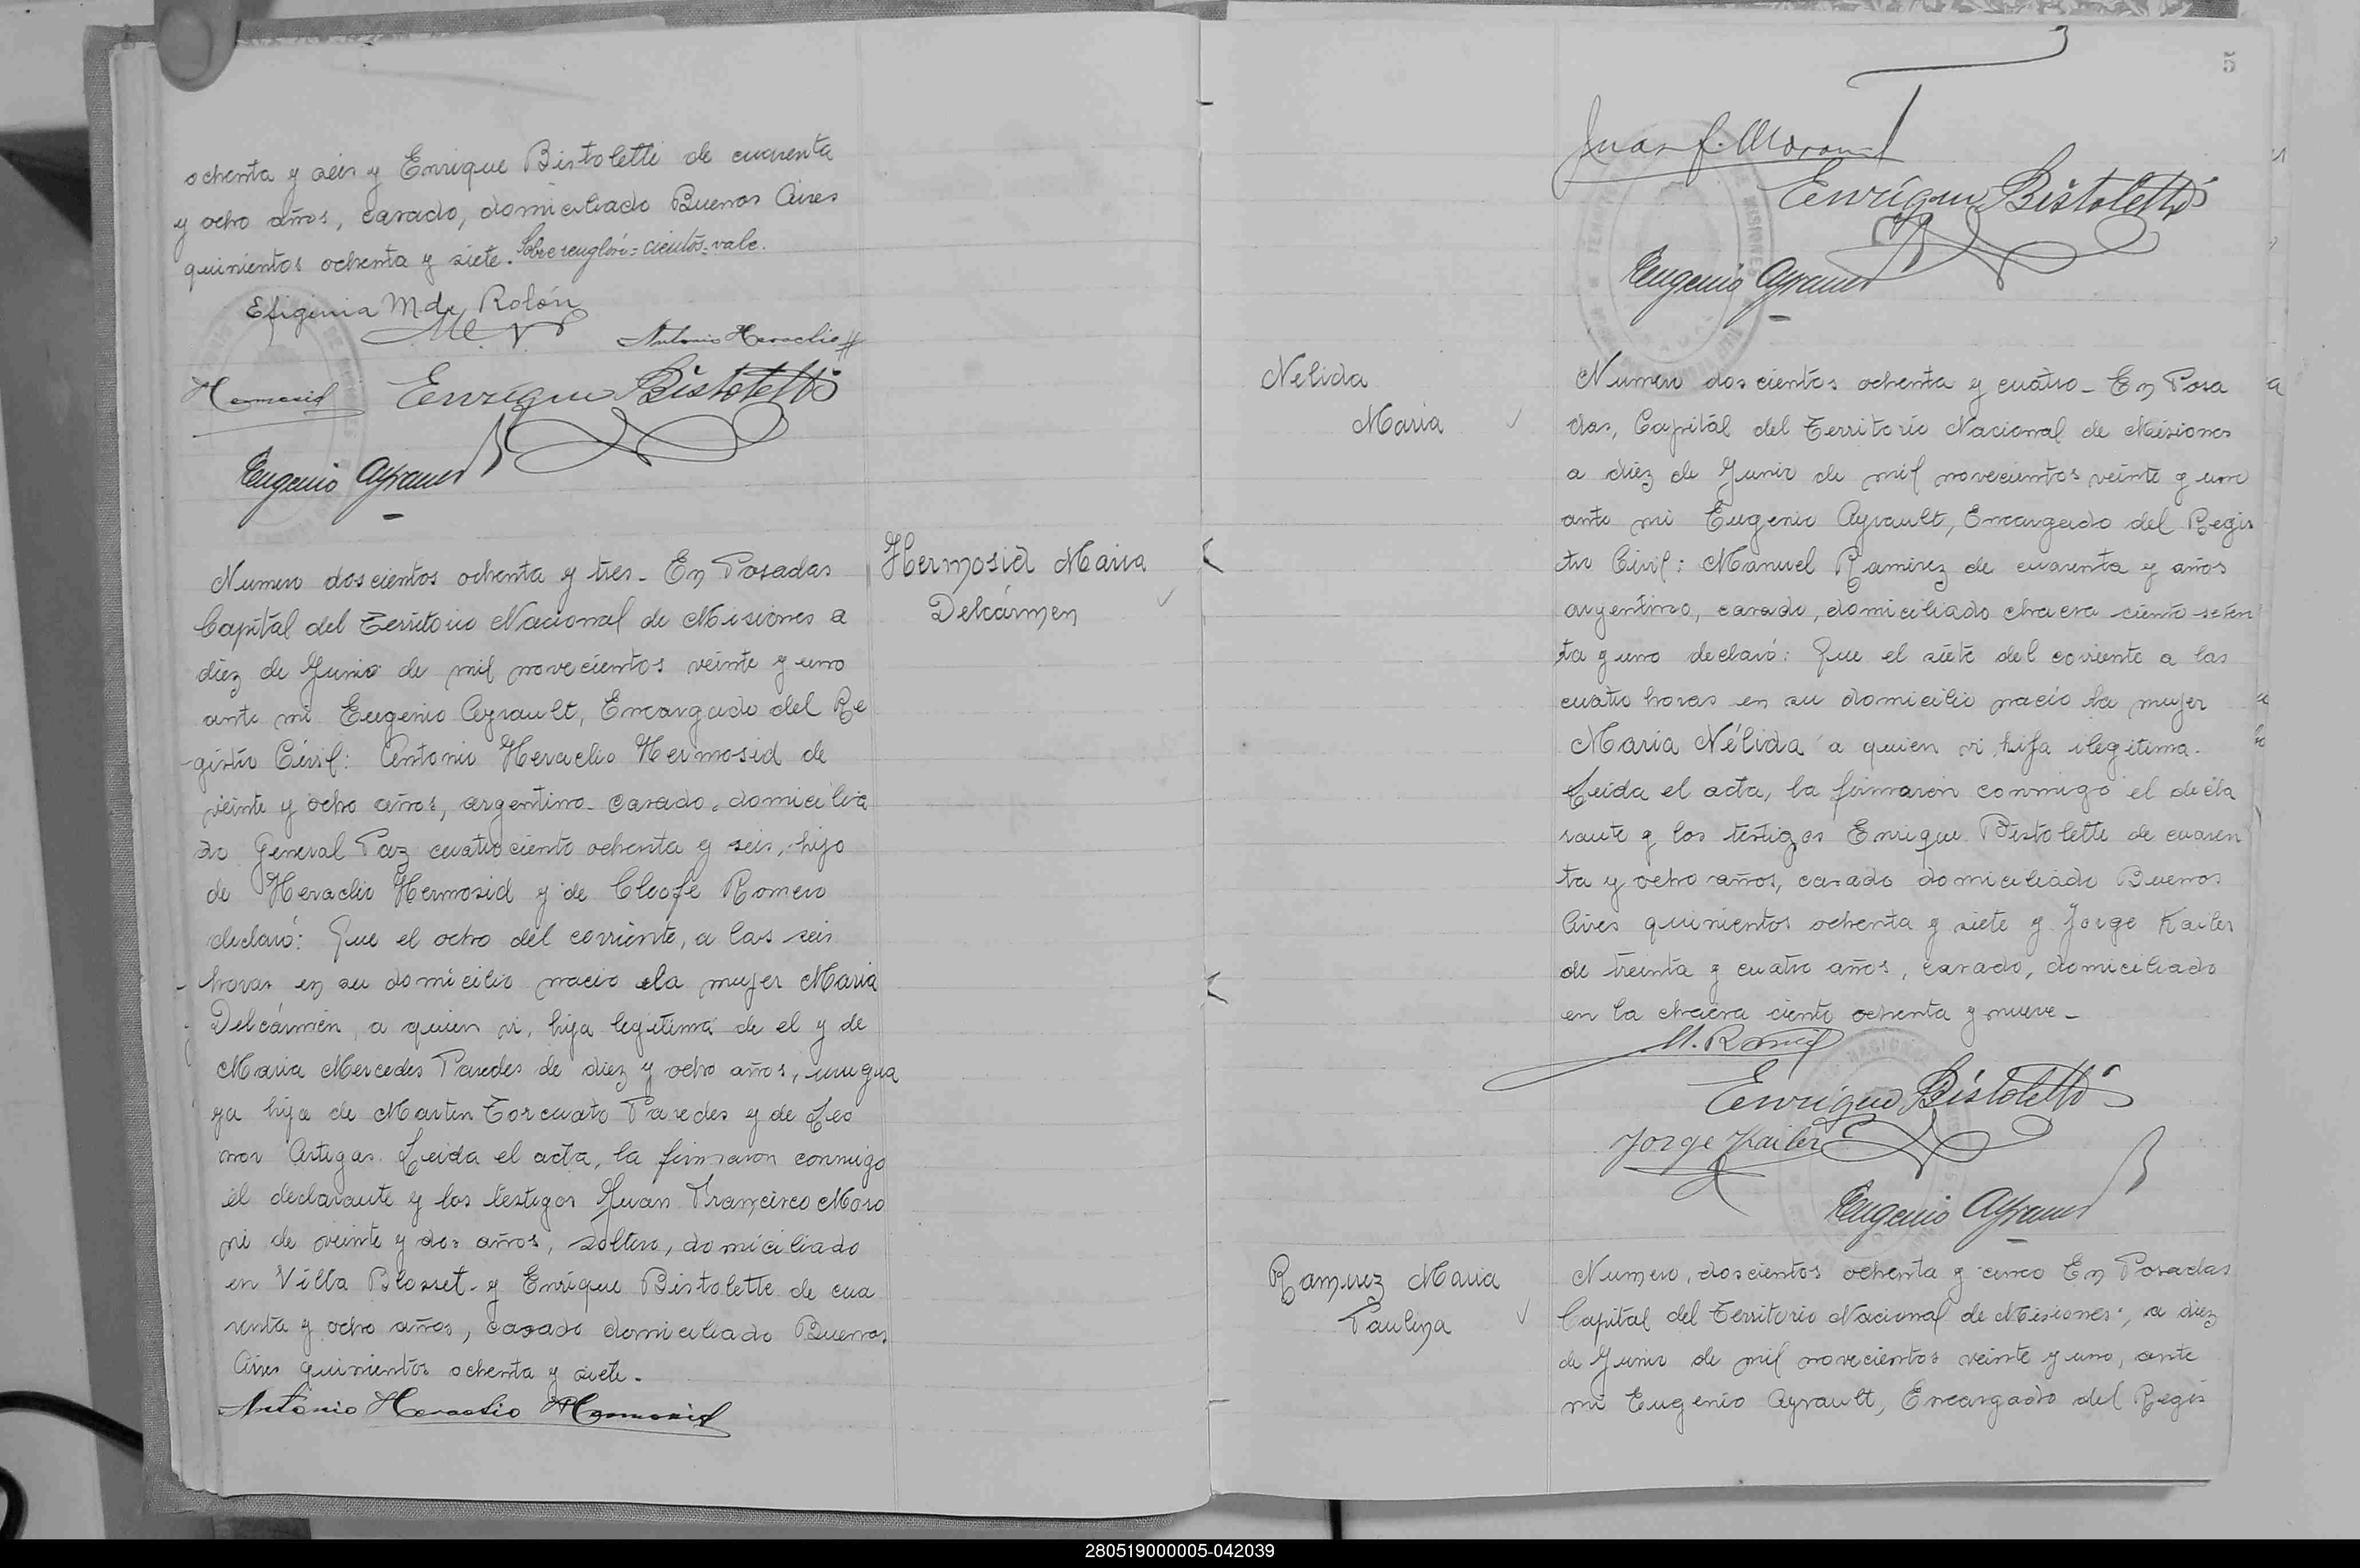 ochenta y seis y Enrique Bistoletti de cuarenta
y ocho años, casado, domiciliado Buenos Aires
quinientos ochenta y siete. Sobre renglón = cientos = vale.
Efigenia M de Rolón
Antonio Heraclio
Hermosid Enrique Bistoletti
Eugenio Ayrault
Numero doscientos ochenta y tres. En Posadas
Capital del Territorio Nacional de Misiones a
diez de Junio de mil novecientos veinte y uno
ante mi Eugenio Ayrault, Encargado del Re
gistro Civil: Antonio Heraclio Hermosid de
veinte y ocho años, argentino casado domicilia
do General Paz cuatrociento ochenta y seis, hijo
de Heraclio Hermosid y de Cleofe Romero
declaró: Que el ocho del corriente, a las seis
horas en su domicilio nacio la mujer Maria
Delcármen, a quien vi, hija legitima de el y de
Maria Mercedes Paredes de diez y ocho años, urugua
ya hija de Martin Torcuato Paredes y de Leo
nor Artigas. Leida el acta, la firmaron conmigo
el declarante y los testigos Juan Francisco Moro
ni de veinte y dos años, soltero, domiciliado
en Villa Blosset y Enrique Bistolette de cua
renta y ocho años, casado domiciliado Buenos
Aires quinientos ochenta y siete.
Antonio Heraclio Hermosid
Hermosid Maria
Delcármen
5
Juan F.
Enrique Bistoletti
Eugenio Ayrault
Nelida
Maria
Numero doscientos ochenta y cuatro - En Posa
das, Capitál del Territorio Nacional de Misiones
a diez de Junio de mil novecientos veinte y uno
ante mi Eugenio Ayrault, Encargado del Regis
tro Civil: Manuel Ramirez de cuarenta y años
argentino, casado, domiciliado chacra ciento seten
ta y uno declaró: Que el siete del coriente a las
cuatro horas en su domicilio nacio la mujer
Maria Nélida a quien vi hija ilegitima.
Leida el acta, la firmaron conmigo el decla
rante y los testigos Enrique Bistolette de cuaren
ta y ocho años, casado domiciliado Buenos
Aires quinientos ochenta y siete y Jorge Kailer
de treinta y cuatro años, casado, domiciliado
en la chacra ciento ochenta y nueve -
Enrique Bistoletti
Jorge Kailer
Eugenio Ayrault
Ramirez Maria
Paulina
Numero, doscientos ochenta y cinco En Posadas
Capital del Territorio Nacional de Misiones, a diez
de Junio de mil novecientos veinte y uno, ante
mi Eugenio Ayrault, Encargado del Regis
280519000005-042039